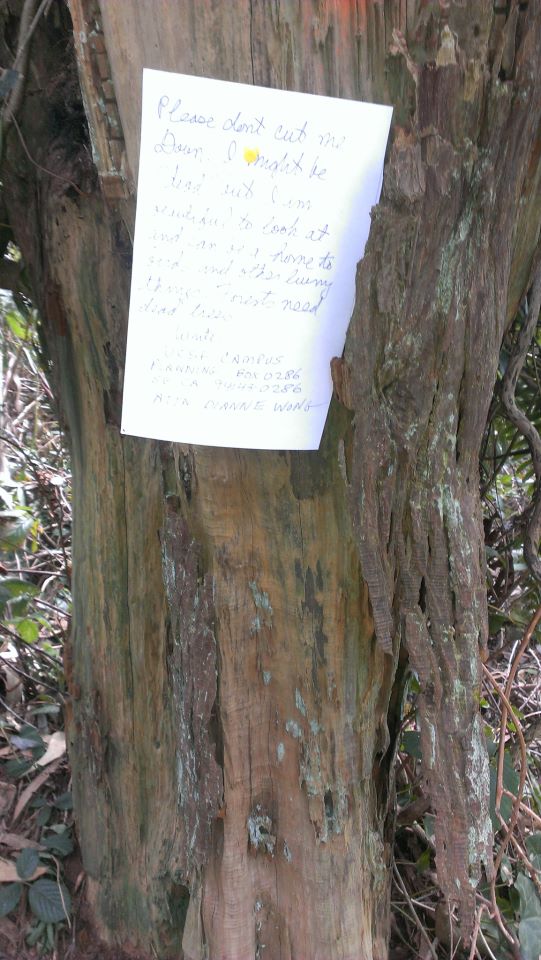 Please dont cut me
Down. I might be
dead but I im
beautiful to look at
and can be a home to
birds and other living
things. Forests need
dead trees
Write
UCSF CAMPUS
PLANNING BOX 0286
SF CA 94143-0286
ATTN DIANNE WONG